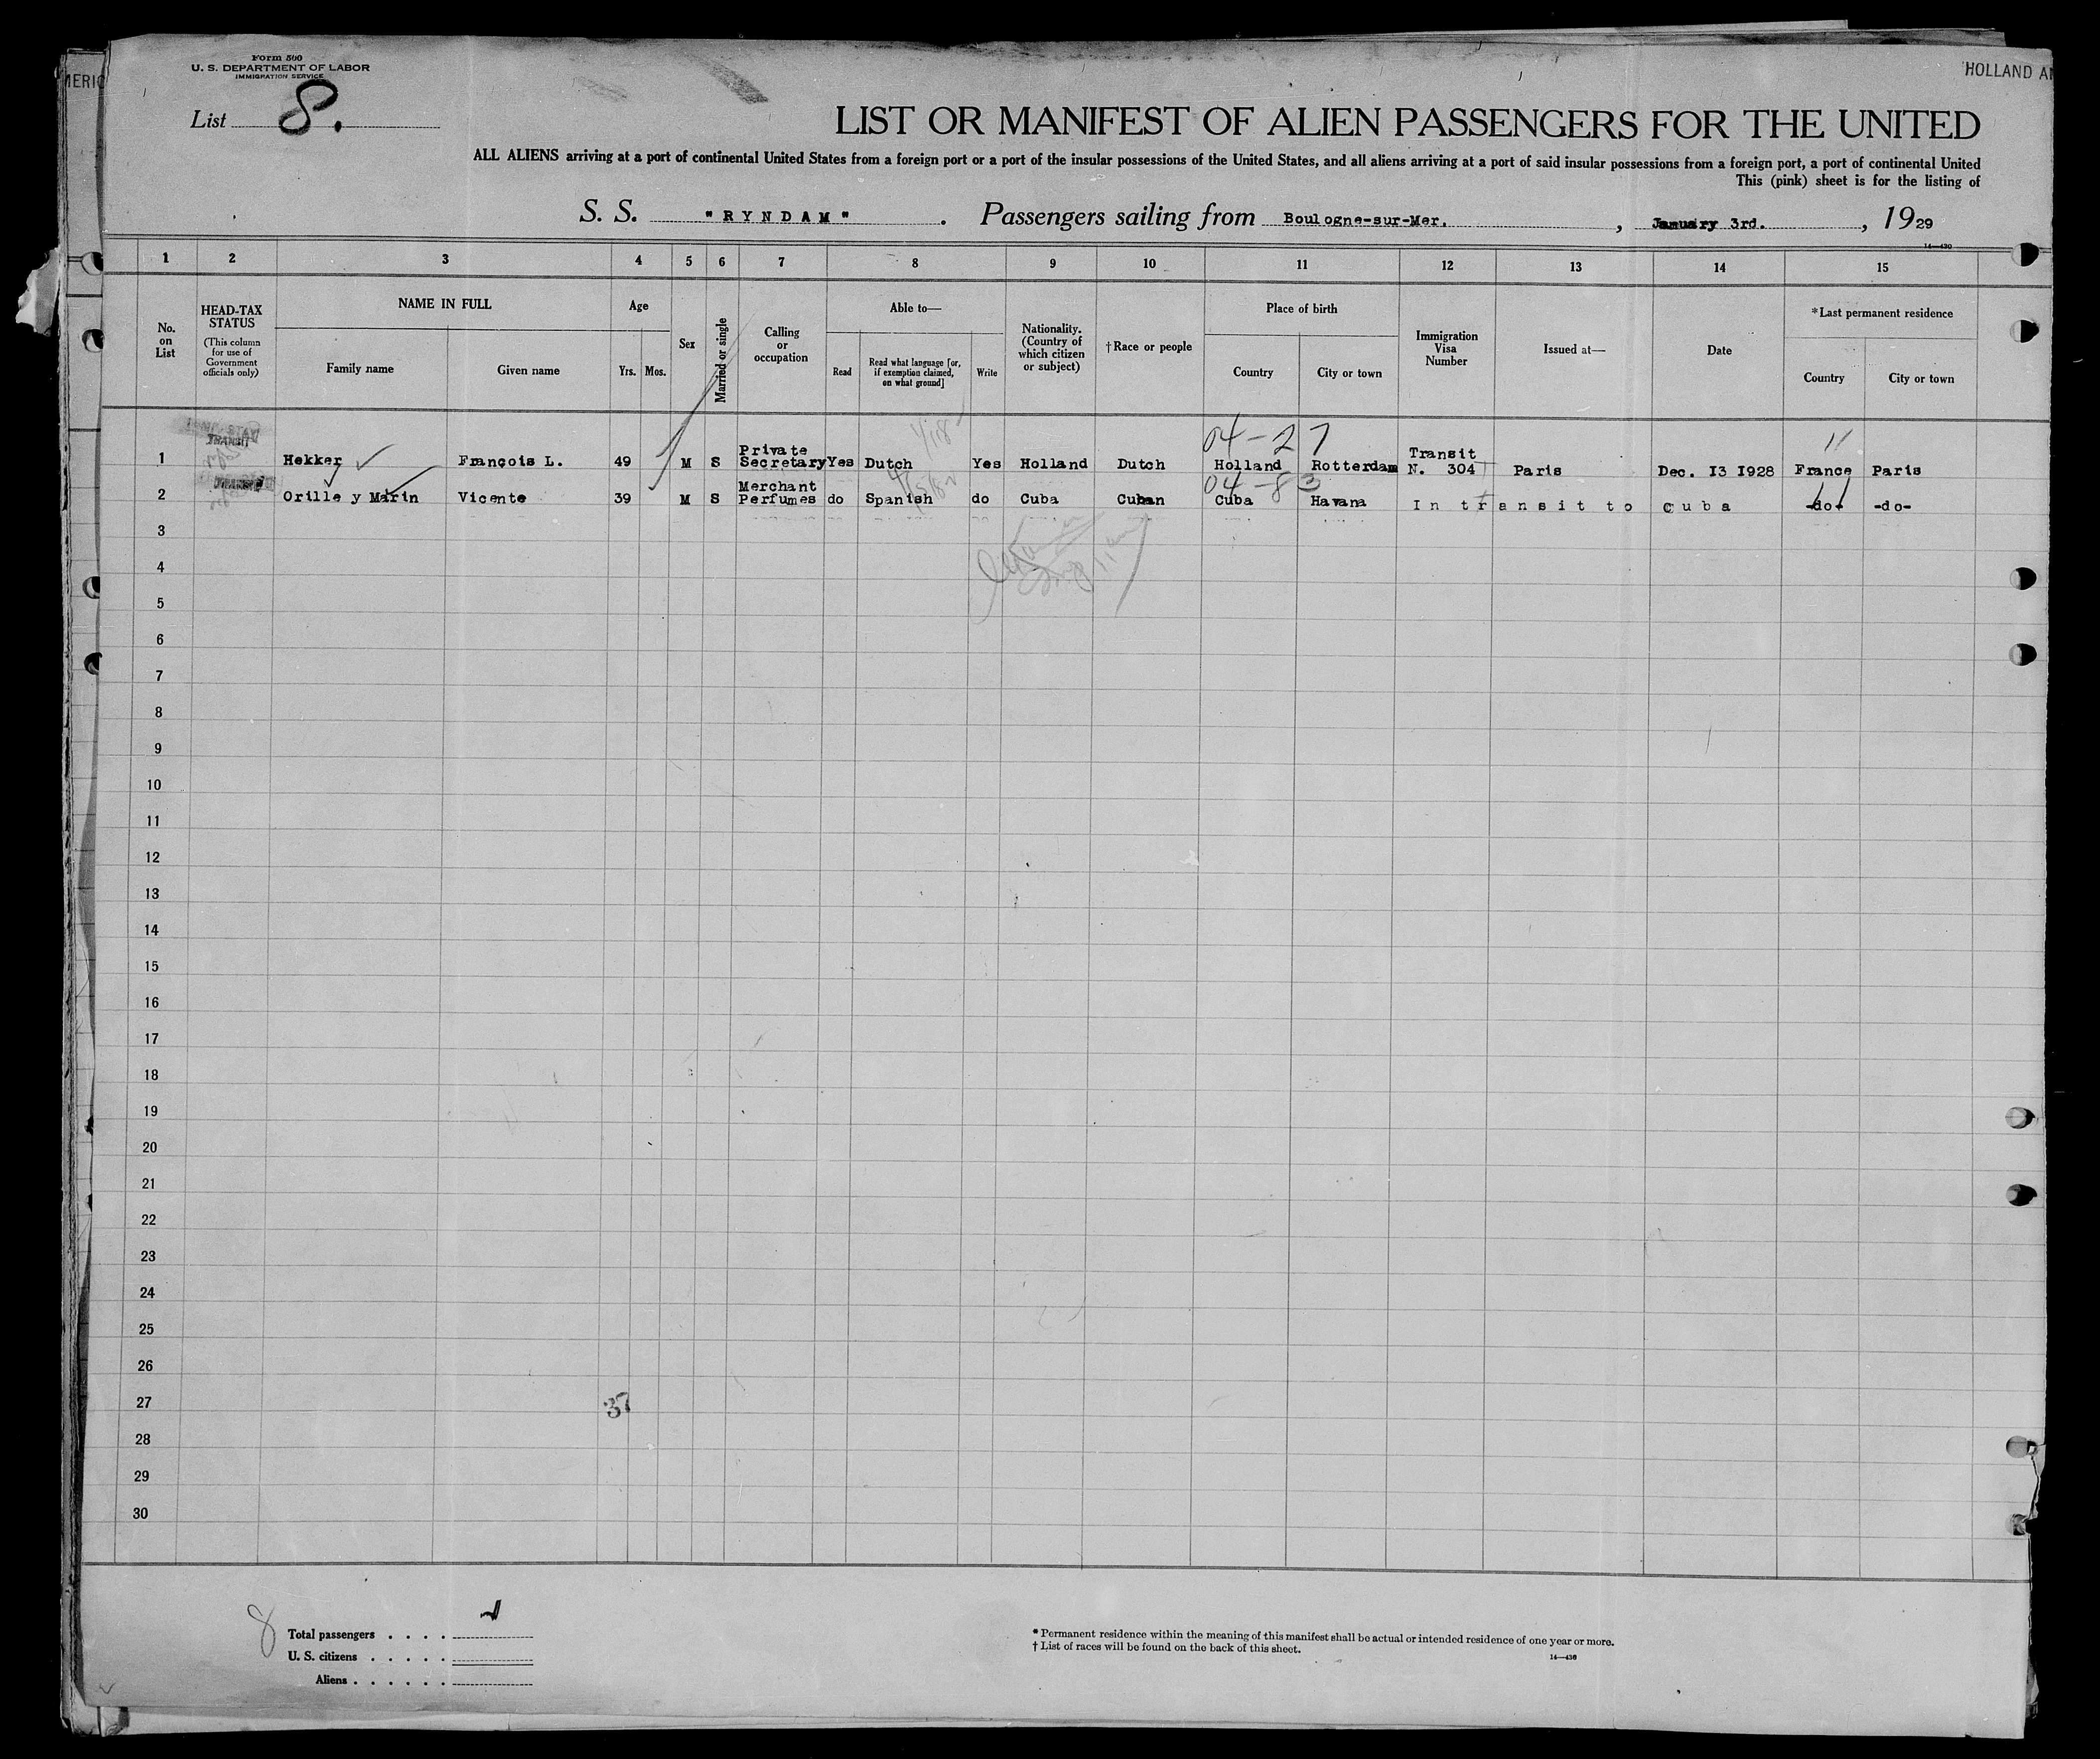 MERIC
Form 500
U. S. DEPARTMENT OF LABOR
IMMIGRATION SERVICE
HOLLAND AM
List 8.
LIST OR MANIFEST OF ALIEN PASSENGERS FOR THE UNITED
ALL ALIENS arriving at a port of continental United States from a foreign port or a port of the insular possessions of the United States, and all aliens arriving at a port of said insular possessions from a foreign port, a port of continental United
This (pink) sheet is for the listing of
S. S. "RYNDAM". Passengers sailing from Boulogne-sur-Mer, , January 3rd. , 1929
14—430
1 2 3 4 5 6 7 8 9 10 11 12 13 14 15
No. on List
HEAD-TAX STATUS
(This column for use of Government officials only)
NAME IN FULL
Family name Given name
Age
Yrs. Mos.
Sex
Married or single
Calling or occupation
Able to—
Read Read what language [or, if exemption claimed, on what ground] Write
Nationality. (Country of which citizen or subject)
†Race or people
Place of birth
Country City or town
Immigration Visa Number
Issued at—
Date
*Last permanent residence
Country City or town
04-27
1 TRANSIT Hekker François L. 49 M S Private Secretary Yes Dutch Yes Holland Dutch Holland Rotterdam Transit N. 304 Paris Dec. I3 I928 France Paris
04-83
2 TRANSIT Orille y Marin Vicente 39 M S Merchant Perfumes do Spanish do Cuba Cuban Cuba Havana In transit to cuba -do- -do-
3
4
5
6
7
8
9
10
11
12
13
14
15
16
17
18
19
20
21
22
23
24
25
26
27 37
28
29
30
8
Total passengers . . . .
U. S. citizens . . . . .
Aliens . . . . . .
* Permanent residence within the meaning of this manifest shall be actual or intended residence of one year or more.
† List of races will be found on the back of this sheet.
14—430